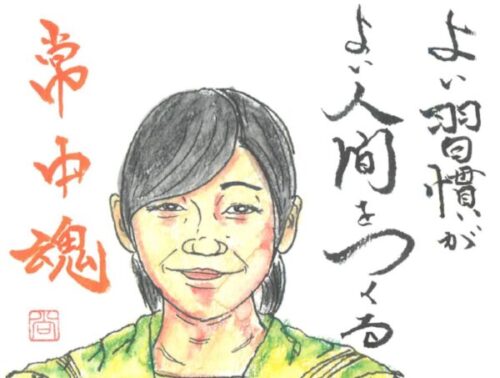 よい習慣が
よい人間をつくる
常中魂
尚